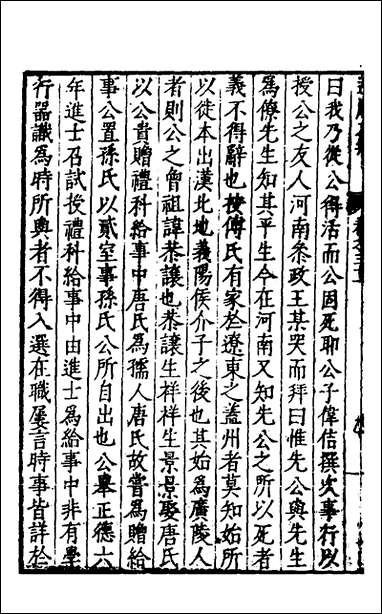 曰我乃從公得活而公因死聊公子偉佶撰次事行以
授公之友人河南叅政王某哭而拜曰惟先公與先生
爲僚先生知其平生今在河南又知先公之所以死者
義不得辭也按傅氏有家於遼東之蓋州者莫知始所
以徙本出漢北地義陽侯介子之後也其始爲廣陵人
者則公之曾祖諱恭讓也恭讓生祥祥生景景娶唐氏
以公貴贈禮科給事中唐氏爲孺人唐氏故嘗爲贈給
事公置孫氏以貳室事孫氏公所自出也公舉正德六
年進士召試授禮科給事中由進士爲給事中非有學
行器識爲時所與者不得入選在職屢言時事皆詳於